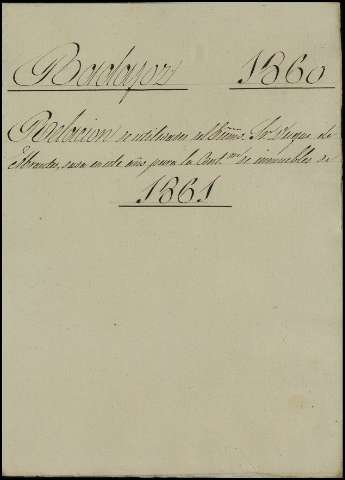 Badajoz 1860
Relacion de utilidades del Escmo. Sr. Duque de
Abrantes, dada en este año para la Cont.on de inmuebles de
1861